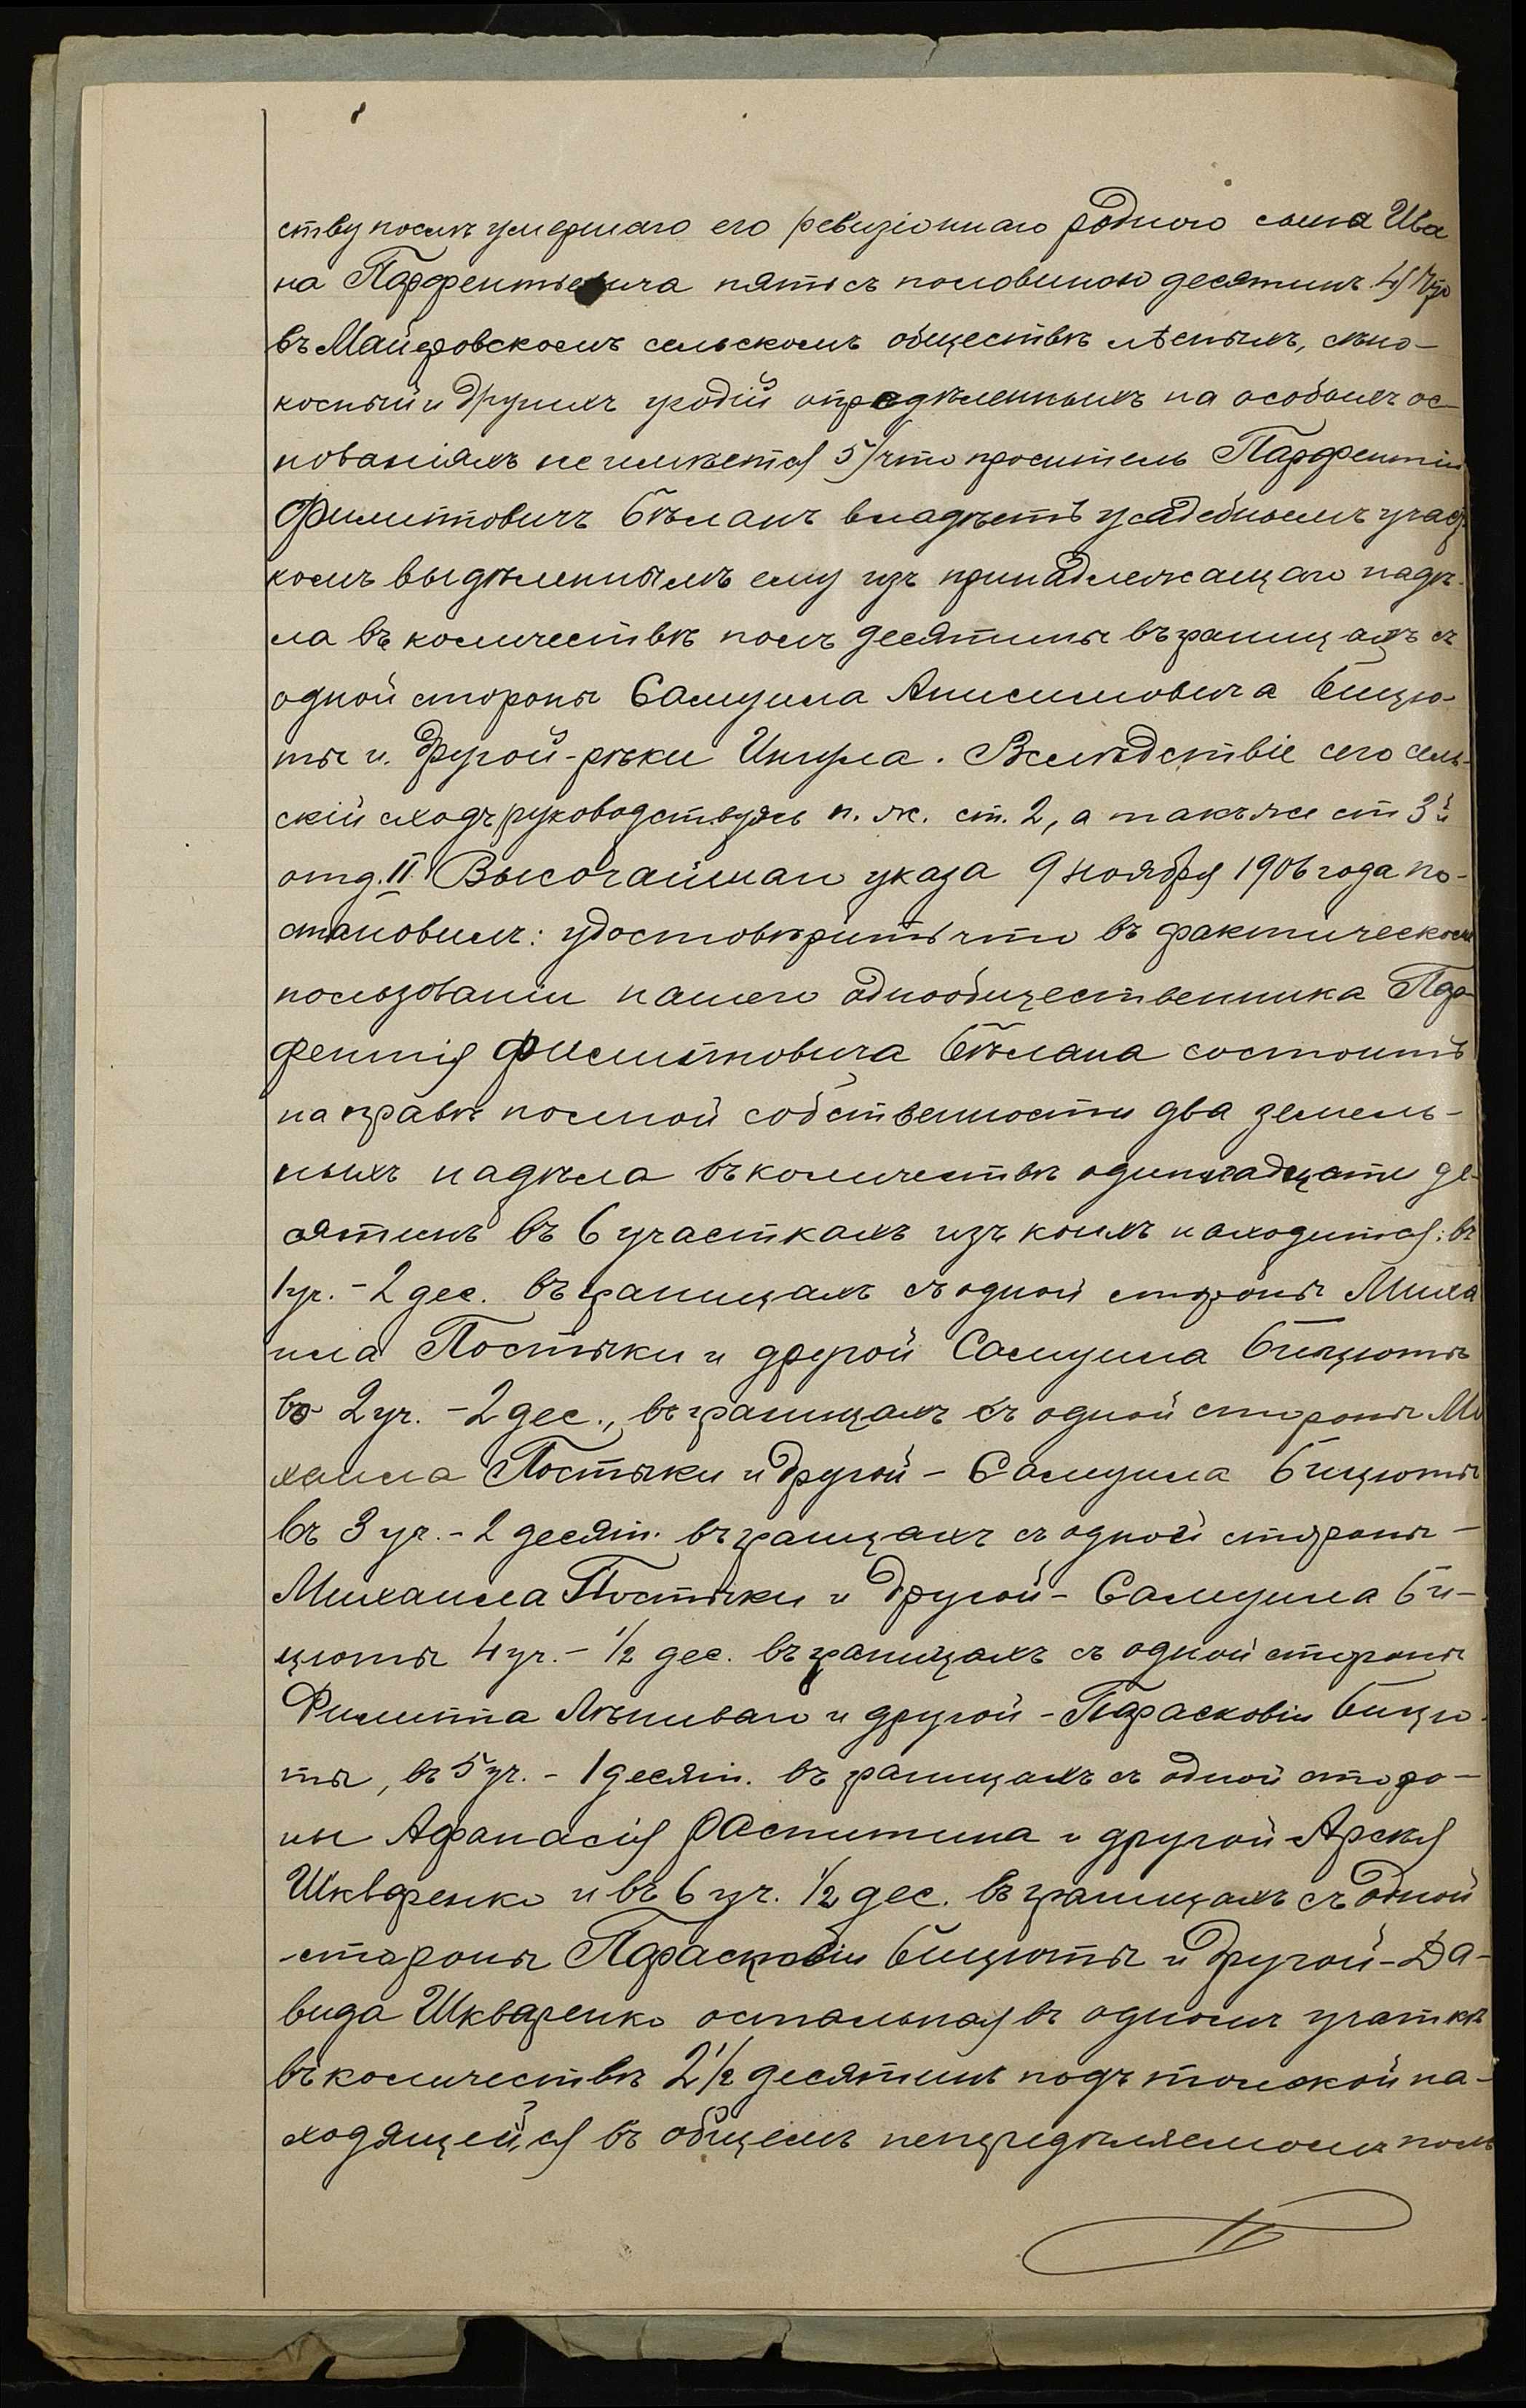 ству послѣ умершаго его ревизіоннаго родного сына Ива
на Парфентьевича пять съ половиною десятинъ 4) Что
въ Майеровскомъ сельскомъ обществѣ лѣсныхъ, сѣно-
косныхъ и другихъ угодій опредѣленныхъ на особыхъ ос-
нованіяхъ не имѣется 5) что проситель Парфентій
Филиповичъ Бѣланъ владѣетъ усадебнымъ участ
комъ выдѣленнымъ ему изъ принадлежащаго надѣ-
ла въ количествѣ полъ десятины въ границахъ съ
одной стороны Самуила Анисимовича Бицю-
ты и другой - рѣки Ингула. Вслѣдствіе сего сель-
скій сходъ руководствуясь п. ж. ст. 2, а также ст 3й
отд. II Высочайшаго указа 9 ноября 1906 года по-
становилъ: удостовѣрить что въ фактическомъ
пользованіи нашего однообщественника Пар-
фентія Филиповича Бѣлана состоитъ
на правѣ полной собственности два земель-
ныхъ надѣла въ количествѣ одинадцати де-
сятинъ въ 6 участкахъ изъ коихъ находится: въ
1 уч. - 2 дес. въ границахъ съ одной стороны Миха
ила Постыки и другой Самуила Бицюты
во 2 уч. - 2 дес., въ границахъ съ одной стороны Ми
хаила Постыки и другой - Самуила Бицюты
въ 3 уч. - 2 десят. въ границахъ съ одной стороны -
Михаила Постыки и другой - Самуила Би-
цюты 4 уч. - ½ дес. въ границахъ съ одной стороны
Филиппа Лѣниваго и другой - Парасковіи Бицю-
ты, въ 5 уч. - 1 десят. въ границахъ съ одной сторо-
ны Афанасія Распитина и другой
Шкваренко и въ 6 уч. ½ дес. въ границахъ съ одной
стороны Парасковіи Бицюты и другой - Да-
вида Шкваренко остальная въ одномъ учаткѣ
въ количествѣ 2½ десятинъ подъ толокой на-
ходящейся въ общемъ непередѣляемомъ полѣ